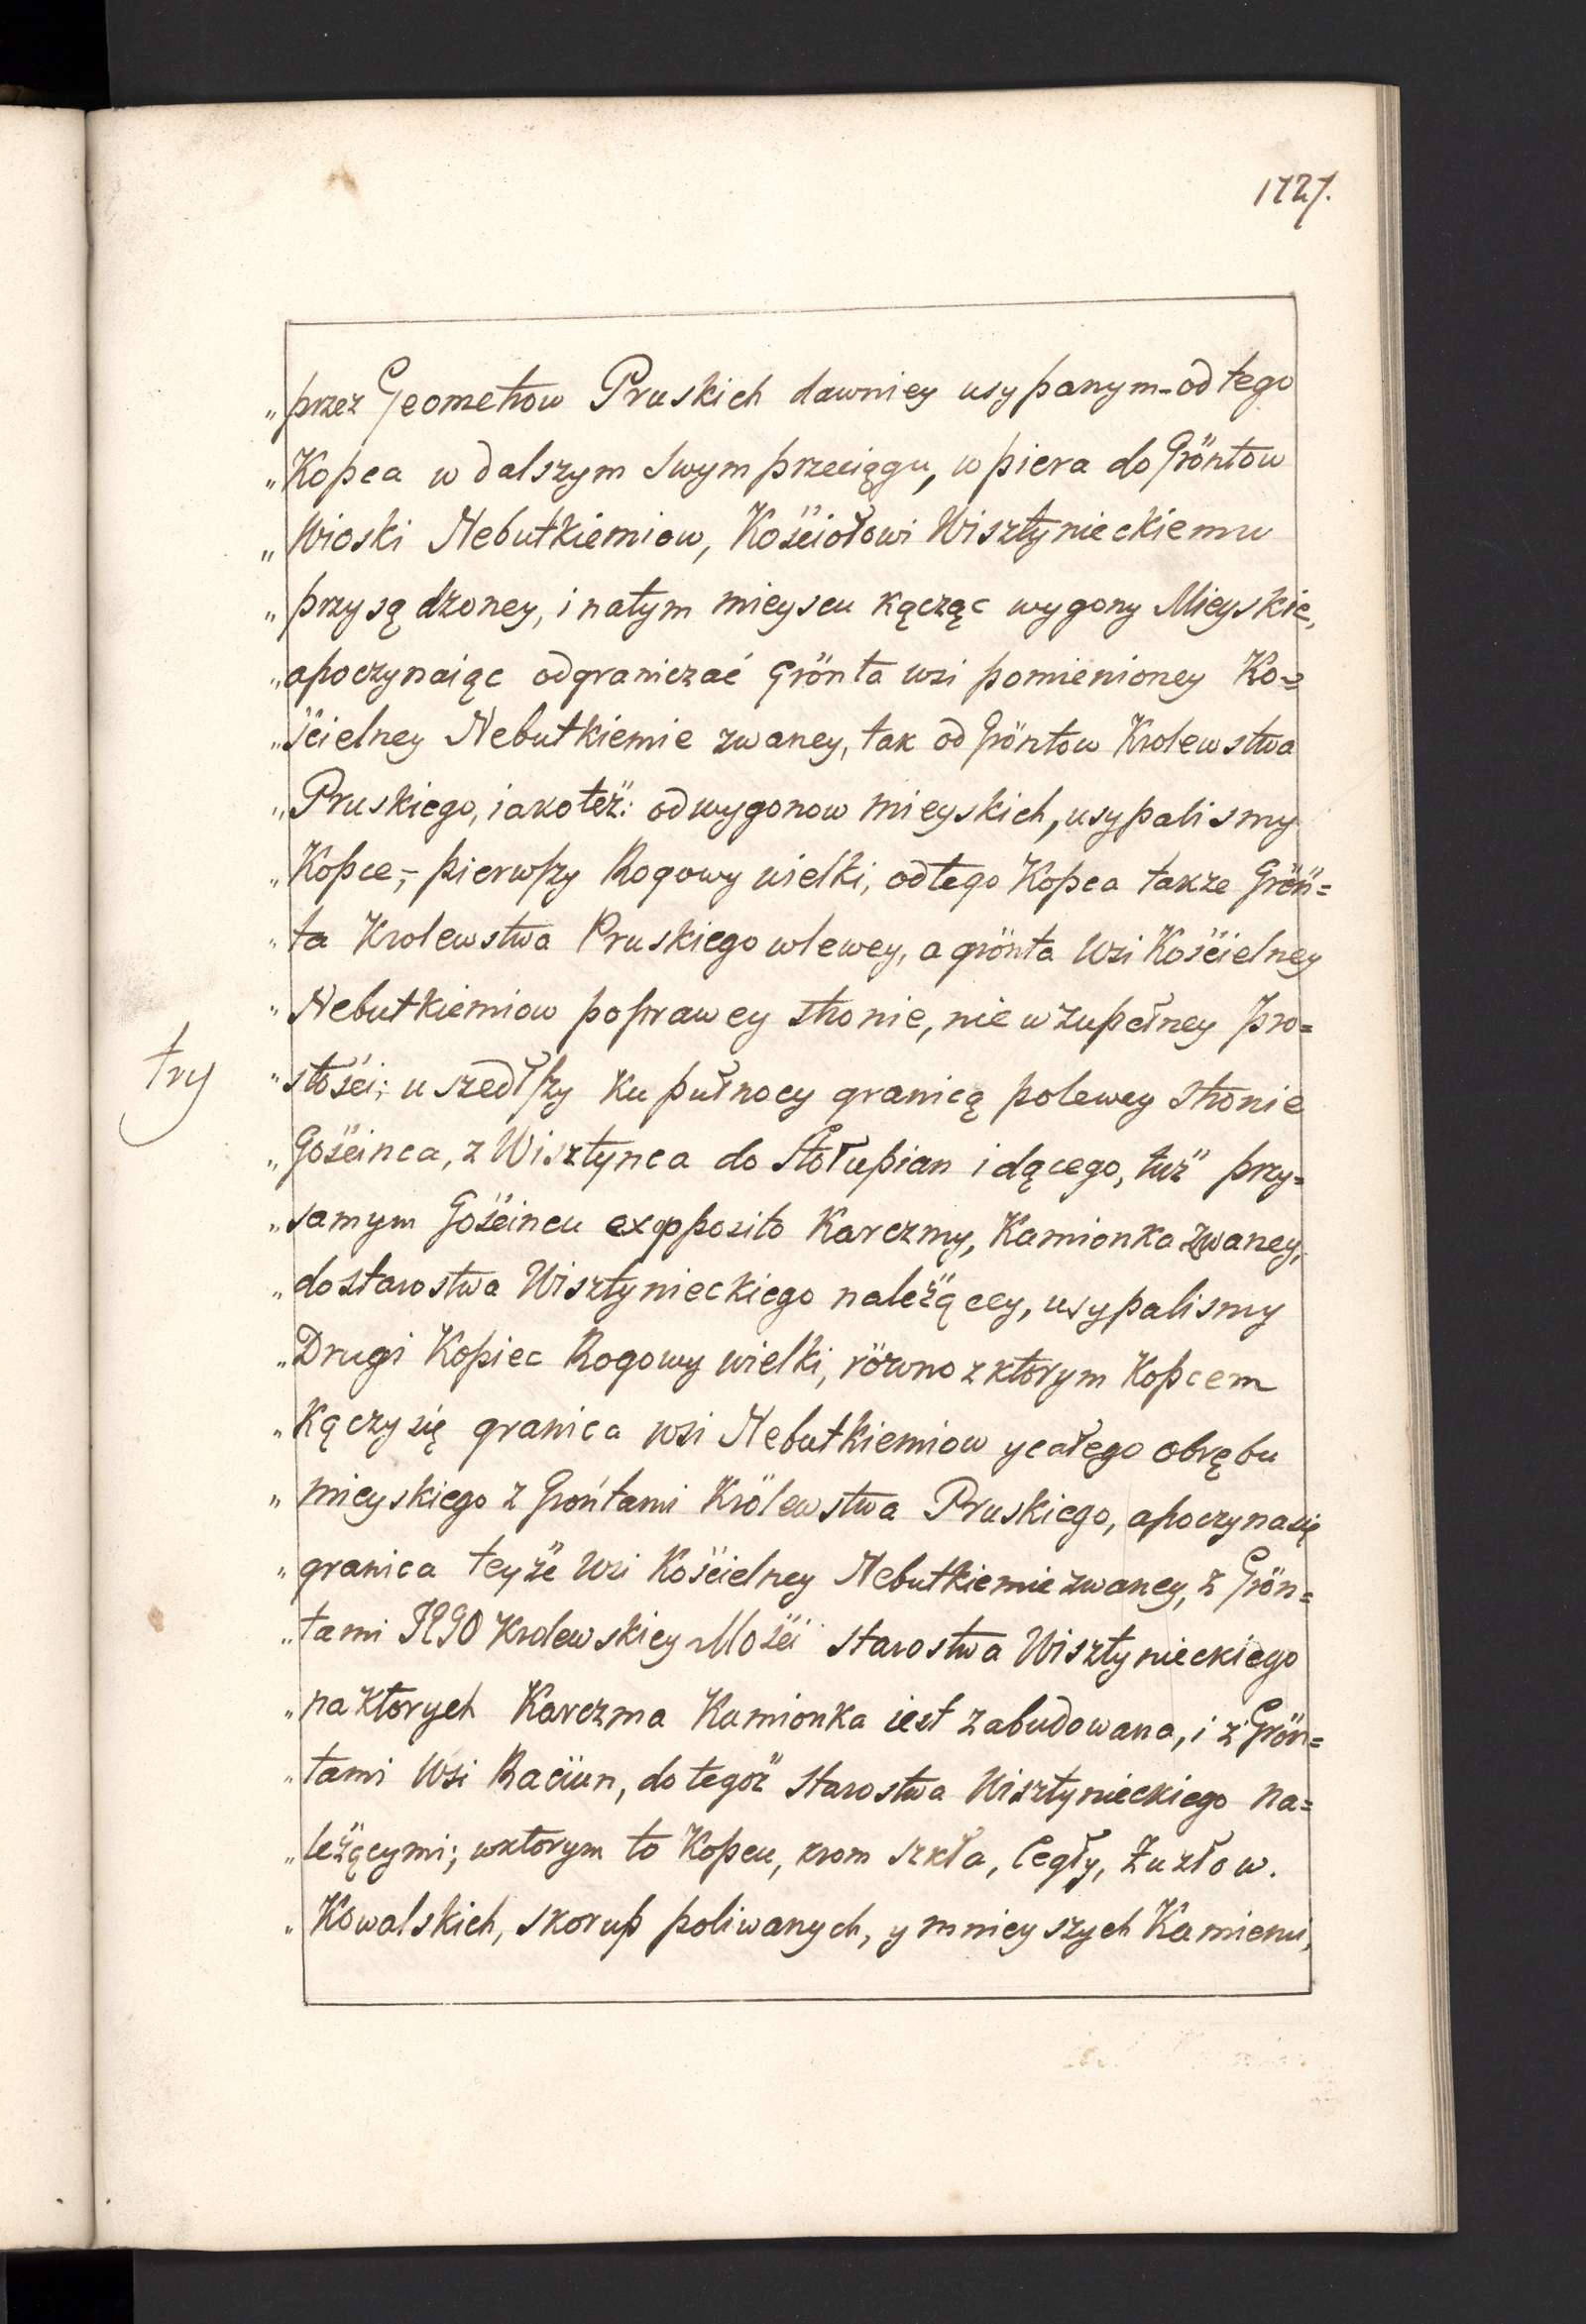 1727.
„przez Geometrow Pruskich dawniey usypanym - od tego
„Kopca w dalszym swym przeciągu, wpiera do Gröntow
„Wioski Nebutkiemiow, Kośćiołowi Wisztynieckiemu
„przysądzoney, i natym mieyscu kącząc wygony Mieyskie,
„apoczynaiąc odgraniczać Grönta wsi pomienioney Ko=
„śćielney Nebutkiemie zwaney, tak od Gröntow Krolewstwa
„Pruskiego, iako też: od wygonow mieyskich, usypalismy
„Kopce,- pierwszy Rogowy wielki, od tego Kopca takze Grön=
„ta Krolewstwa Pruskiego wlewey, a grönta Wsi Kośćielney
„Nebutkiemiow poprawey stronie, nie w zupełney pro=
try
„stośći; uszedłszy Ku pułnocy granicą polewey stronie
„Gośćinca, z Wisztynca do Stołupian idącego, tuż przy=
„samym Gośćincu exopposito Karczmy, Kamionka zwaney,
„do starostwa Wisztynieckiego należącey, usypalismy
„Drugi Kopiec Rogowy wielki, równo z ktorym Kopcem
„Kączy się granica wsi Nebutkiemiow y całego obrębu
„mieyskiego z Grontami Królewstwa Pruskiego, apoczyna się
„granica teyże Wsi Kośćielney Nebutkiemie zwaney, z Grön=
„tami Krolewskiey Mośći starostwa Wisztynieckiego
„na ktorych Karczma Kamionka iest zabudowana, i z Grön=
„tami Wsi Raciun, do tegoż Starostwa Wisztynieckiego na=
„leżącymi; wktorym to Kopcu, krom szkła, Cegły, Żużlow.
„Kowalskich, skorup poliwanych, y mnieyszych Kamieni,